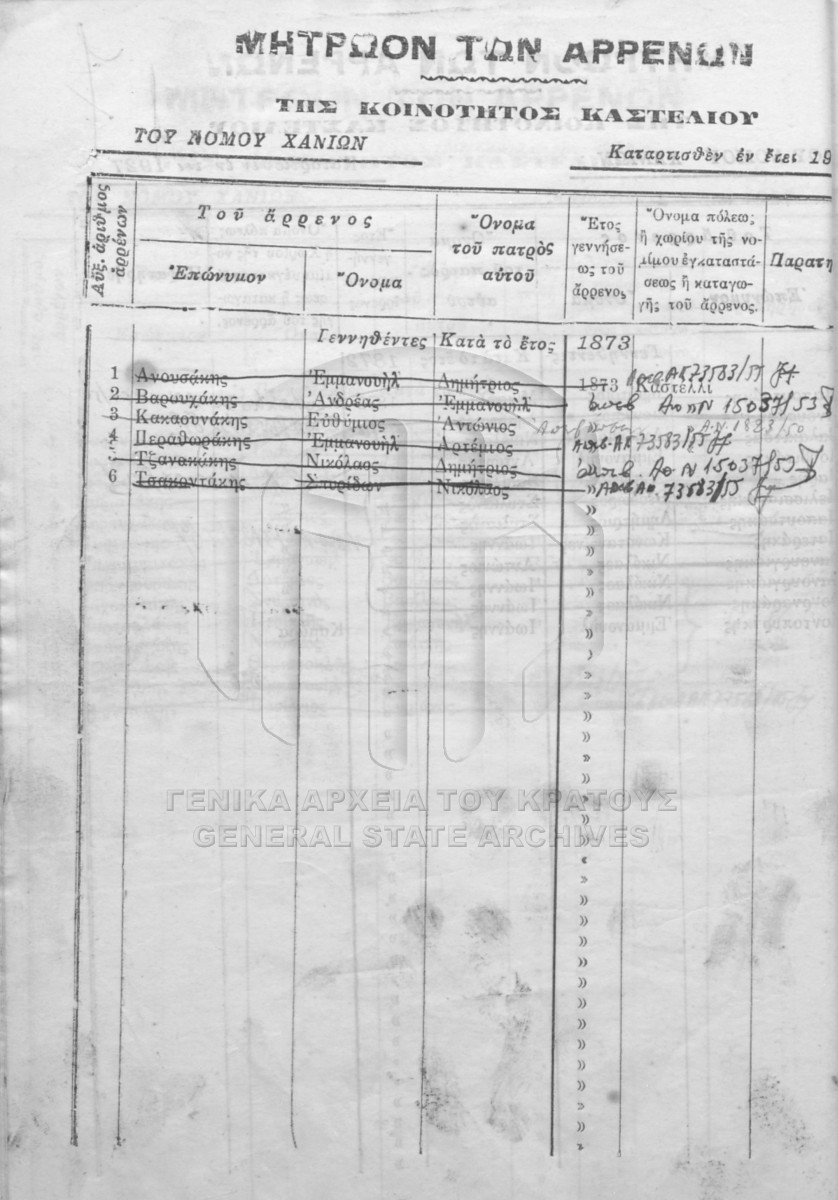 ΜΗΤΡΩΟΝ ΤΩΝ ΑΡΡΕΝΩΝ
ΤΗΣ ΚΟΙΝΟΤΗΤΟΣ ΚΑΣΤΕΛΙΟΥ
ΤΟΥ ΝΟΜΟΥ ΧΑΝΙΩΝ
Καταρτισθὲν ἐν ἔτει 19
Αὔξ. ἀριθμος ἀρρένων
Τοῦ ἄρρενος
Ἐπώνυμον
Ὄνομα
Ὄνομα
τοῦ πατρὸς
αὐτοῦ
Ἔτος
γεννήσε-
ως τοῦ
ἄρρενος
Ὄνομα πόλεως
ἢ χωρίου τῆς νο-
μίμου ἐγκαταστά-
σεως ἢ καταγω-
γῆς τοῦ ἄρρενος.
Παρατη
Γεννηθέντες Κατὰ τὸ ἔτος 1873
1 Ἀνουσάκης Ἐμμανουὴλ Δημήτριος 1873 Καστέλλι 73583/55
2 Βαρουχάκης Ἀνδρέας Ἐμμανουὴλ 15037/53
3 Κακαουνάκης Εὐθύμιος Ἀντώνιος 1823/50
4 Περαθωράκης Ἐμμανουὴλ Ἀρτέμιος 73583/55
5 Τζανακάκης Νικόλαος Δημήτριος 15037/53
6 Τσακοντάκης Σπυρίδων Νικόλαος » 73583/55
ΓΕΝΙΚΑ ΑΡΧΕΙΑ ΤΟΥ ΚΡΑΤΟΥΣ
GENERAL STATE ARCHIVES